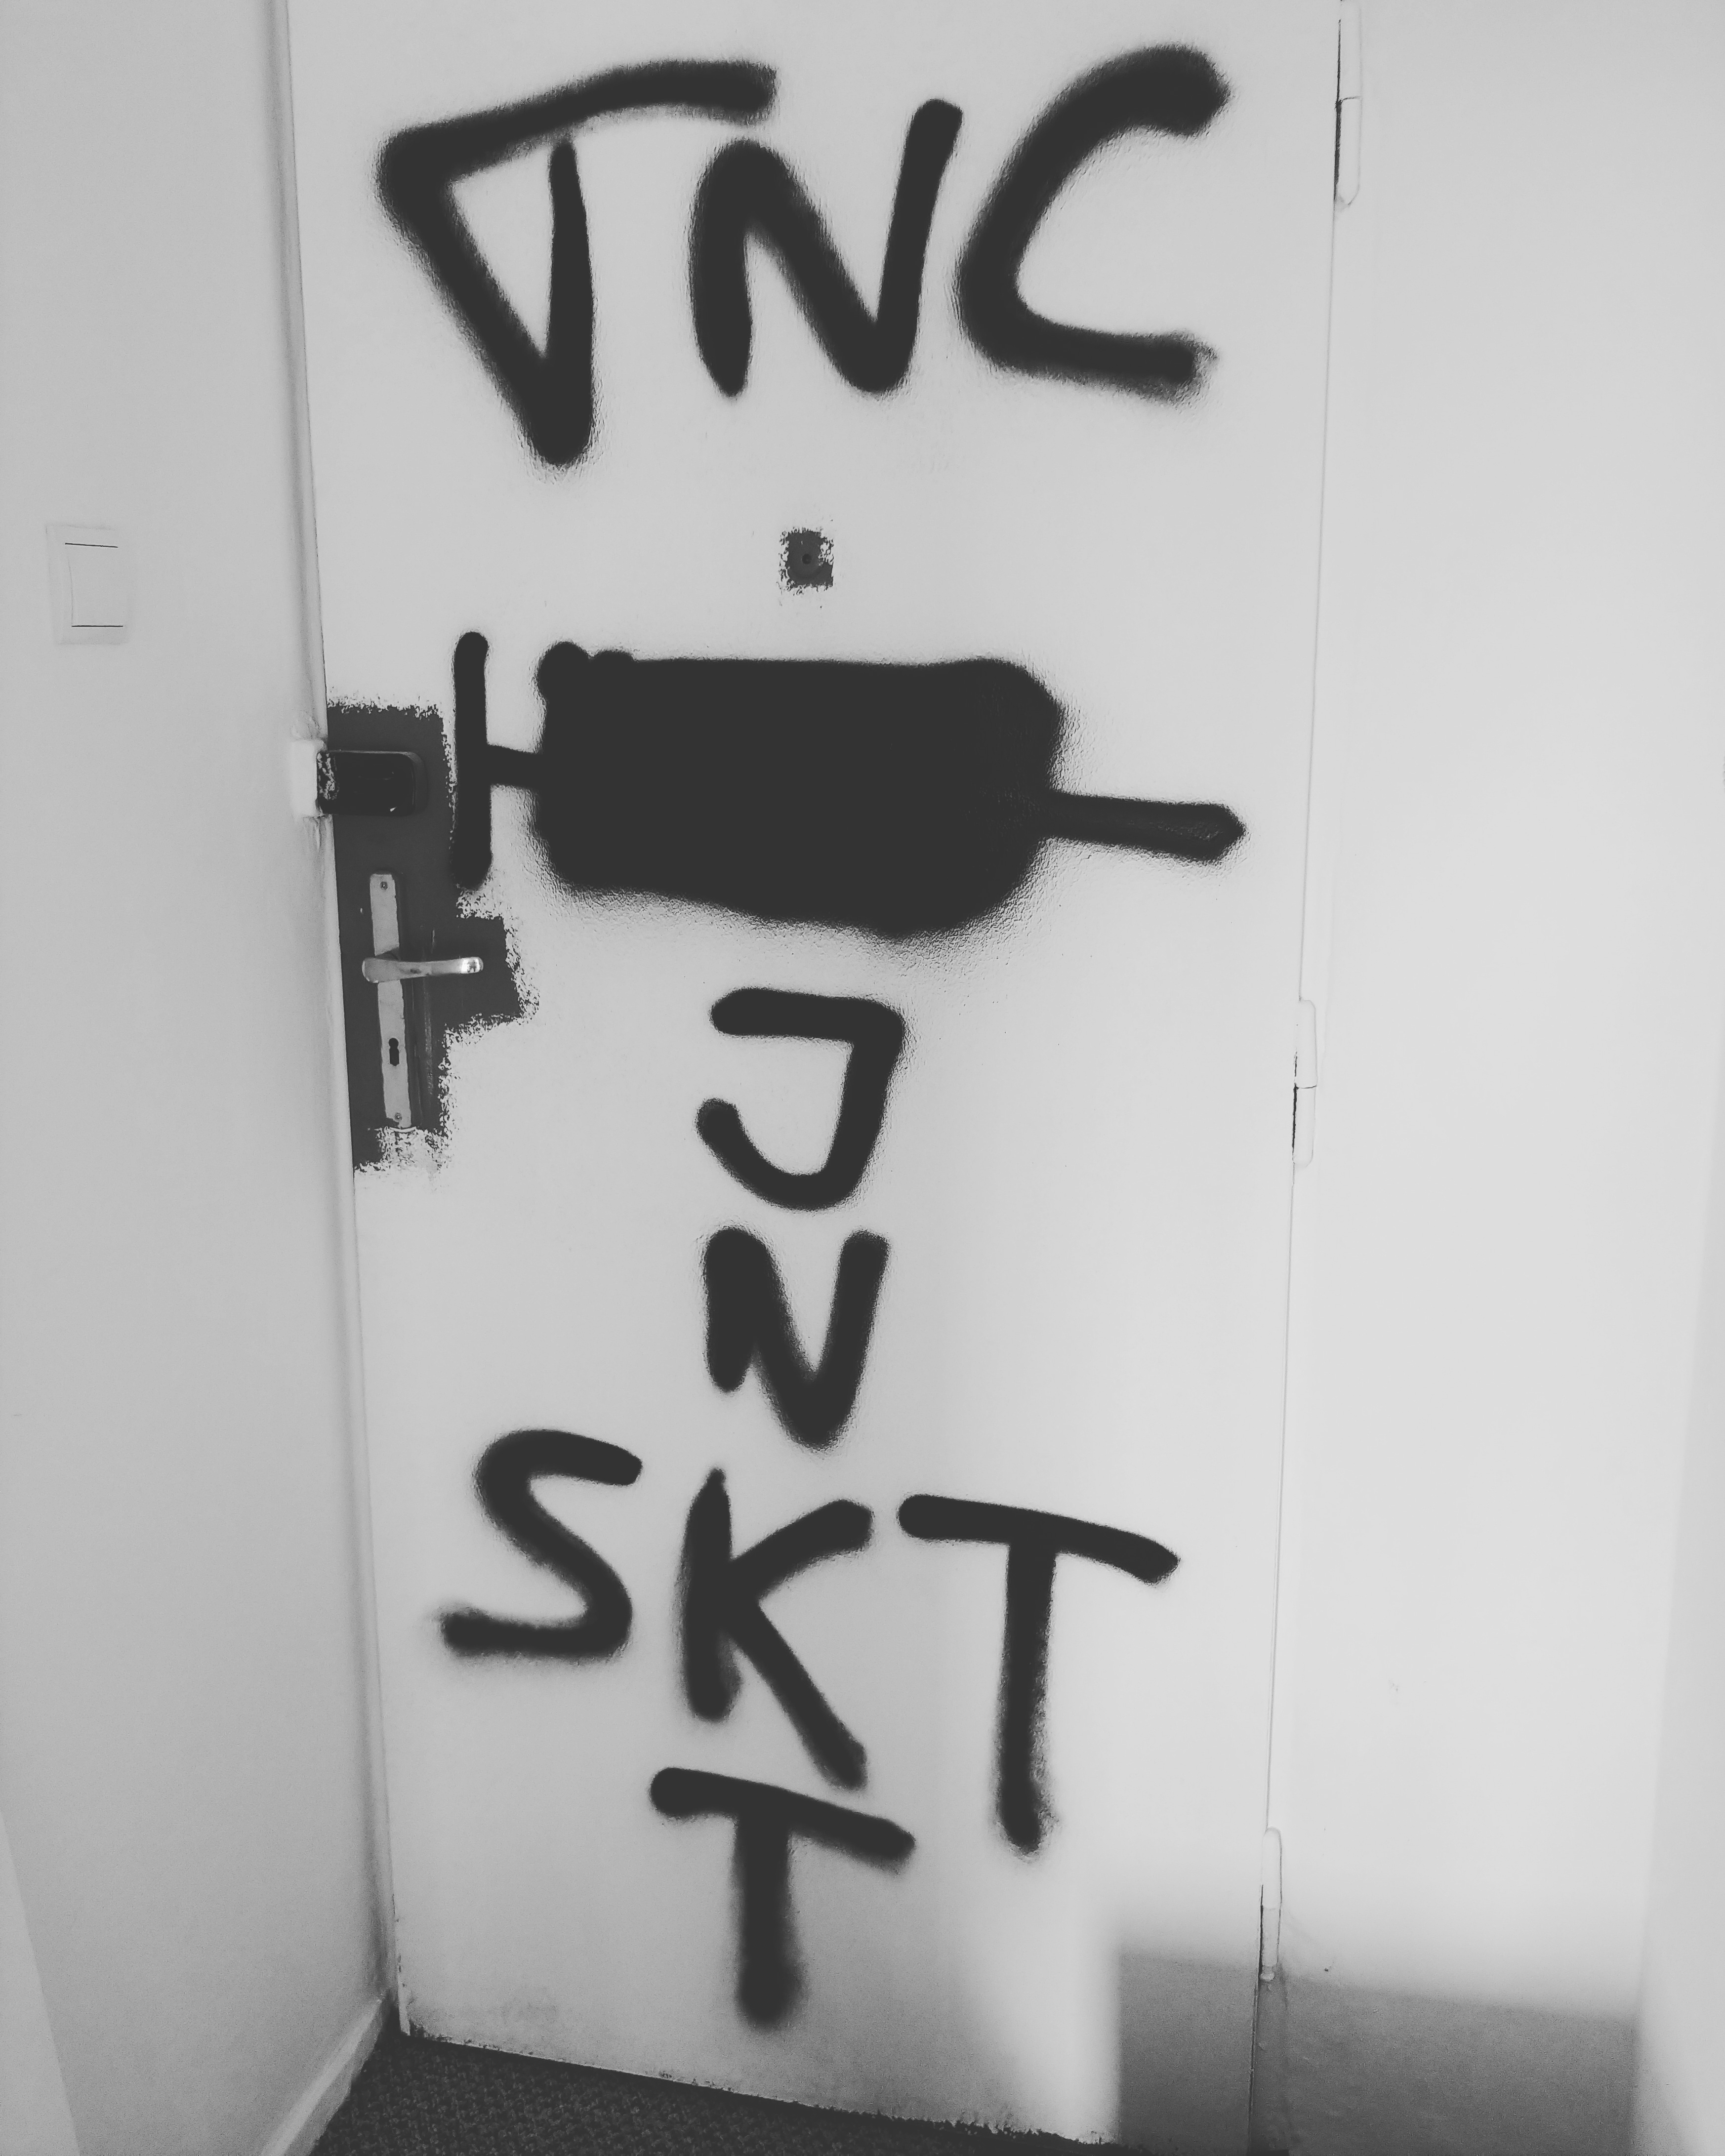 TNC
J
N
SKT
T